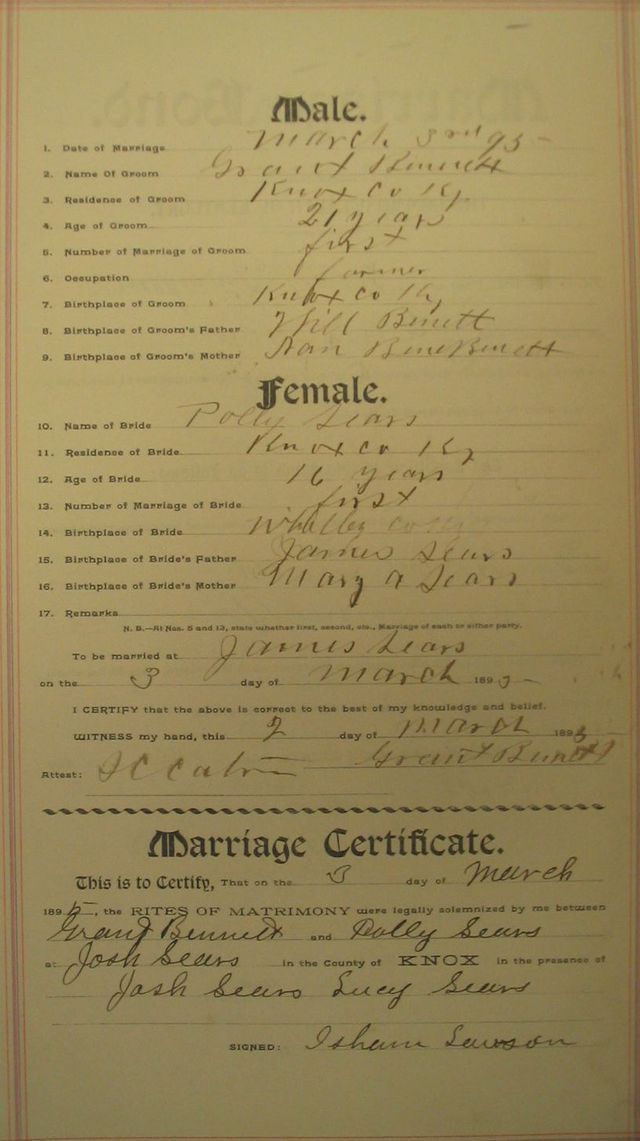 Male.
1. Date of Marriage March 3rd 95-
2. Name Of Groom Grant Bennett
3. Residence of Groom Knox Co Ky
4. Age of Groom 21 years
5. Number of Marriage of Groom first
6. Occupation farmer
7. Birthplace of Groom Knox Co Ky
8. Birthplace of Groom's Father Will Benett
9. Birthplace of Groom's Mother Benett
Female.
10. Name of Bride Polly Sears
11. Residence of Bride Knox co Ky
12. Age of Bride 16 years
13. Number of Marriage of Bride first
14. Birthplace of Bride
15. Birthplace of Bride's Father James Sears
16. Birthplace of Bride's Mother Mary a Sears
17. Remarks
N. B.—At Nos. 5 and 13, state whether first, second, etc., Marriage of each or either party.
To be married at James Sears
on the 3 day of March 189
I CERTIFY that the above is correct to the best of my knowledge and belief.
WITNESS my hand, this 2 day of March 189
Attest: Grant Benett
Marriage Certificate.
This is to Certify, That on the 3 day of March
1895, the RITES OF MATRIMONY were legally solemnized by me between
Grant Bennett and Polly Sears
at Josh Sears in the County of KNOX in the presence of
Josh Sears Lucy Sears
SIGNED: Isham Lawson